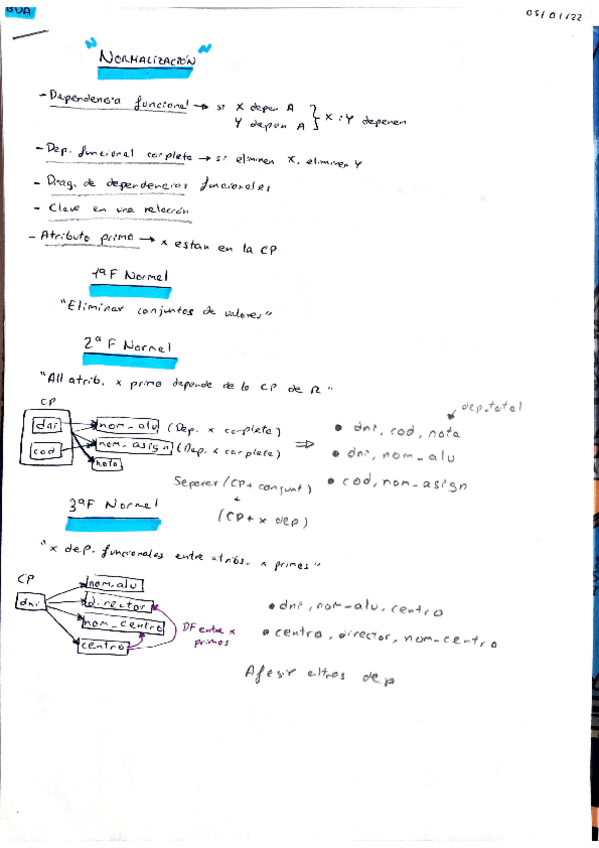 BDA
05/01/22
"NORMALIZACIÓN"
- Dependencia funcional → si X depen A } X i Y depenen
Y depen A
- Dep. funcional complete → si eliminen X, eliminen Y
- Diag. de dependencias funcionales
- Clave en una relación
- Atributo primo → x estan en la CP
1ª F Normal
"Eliminar conjuntos de valores"
2ª F Normal
"All atrib. x primo depende de la CP de R"
dep. total
CP
dni nom_alu (Dep. x complete) ⇒ • dni, cod, nota
cod nom_asign (Dep. x complete) • dni, nom_alu
nota • cod, nom_asign
Separar (CP + conjunt)
↓
(CP + x dep)
3ª F Normal
"x dep. funcionales entre atribs. x primos"
CP nom_alu
dni director • dni, nom_alu, centro
nom_centro DF entre x primos • centro, director, nom_centro
centro
dep